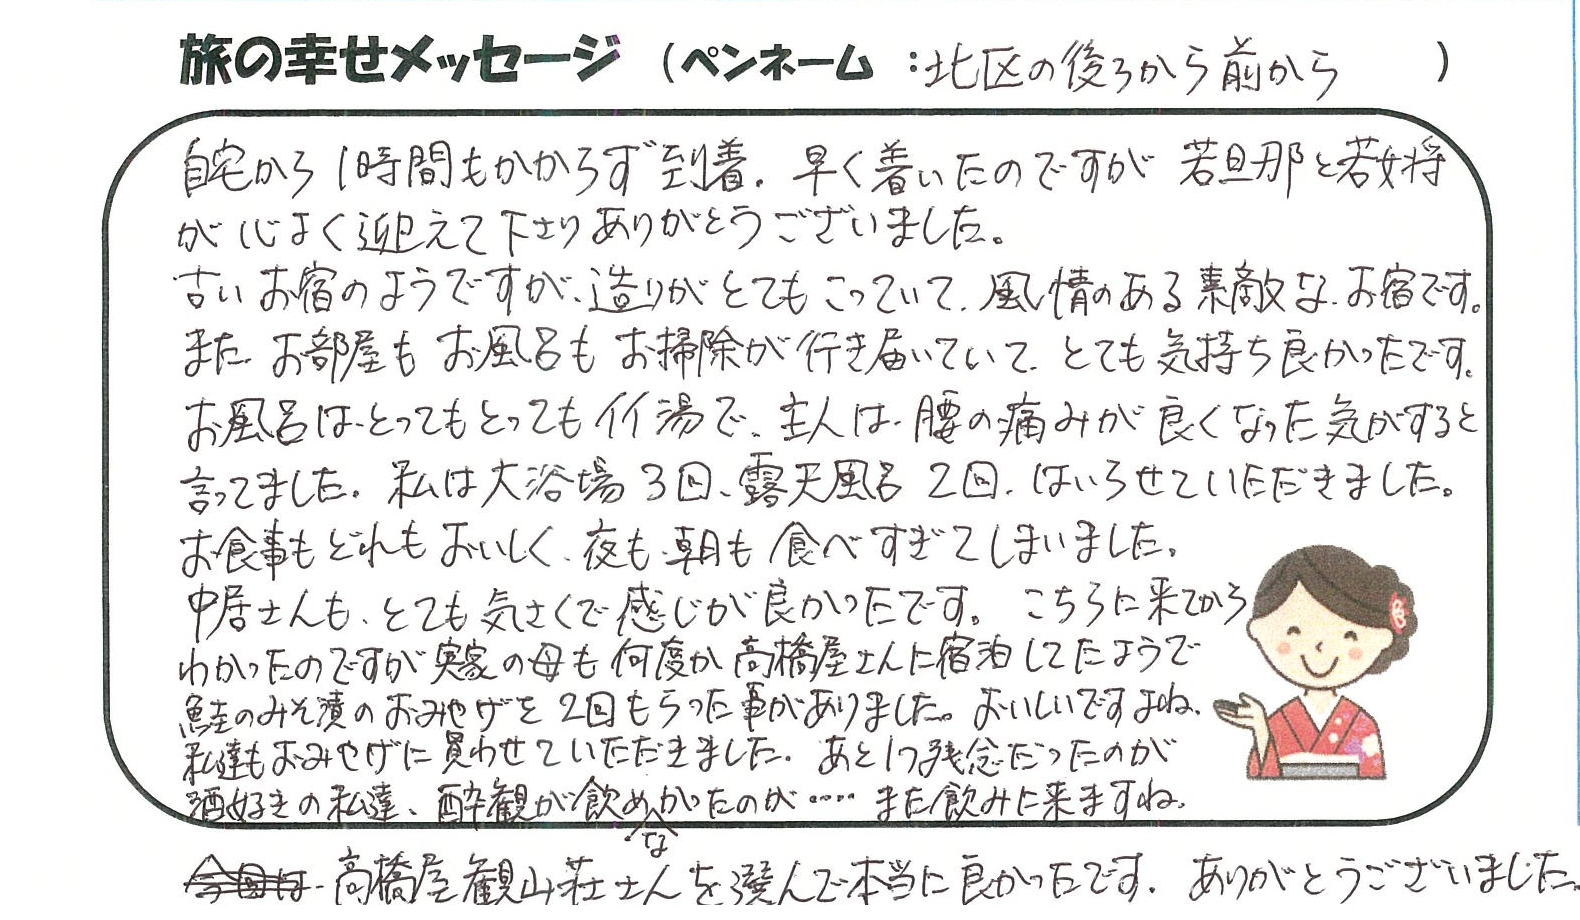 旅の幸せメッセージ (ペンネーム :北区の後ろから前から )
自宅から1時間もかからず到着。早く着いたのですが 若旦那と若女将
が心よく迎えて下さりありがとうございました。
古いお宿のようですが、造りがとてもこっていて、風情のある素敵なお宿です。
また お部屋もお風呂もお掃除が行き届いていて とても気持ち良かったです。
お風呂は、とってもとってもイイ湯で、主人は、腰の痛みが良くなった気がすると
言ってました。私は大浴場3回、露天風呂2回、はいらせていただきました。
お食事もどれもおいしく、夜も朝も食べすぎてしまいました。
中居さんも、とても気さくで感じが良かったです。こちらに来てから
わかったのですが実家の母も何度か高橋屋さんに宿泊してたようで
鮭のみそ漬のおみやげを2回もらった事がありました。おいしいですよね。
私達もおみやげに買わせていただきました。あと1つ残念だったのが
酒好きの私達、酔観が飲めなかったのが‥‥また飲みに来ますね。
今回は 高橋屋観山荘さんを選んで本当に良かったです。ありがとうございました。